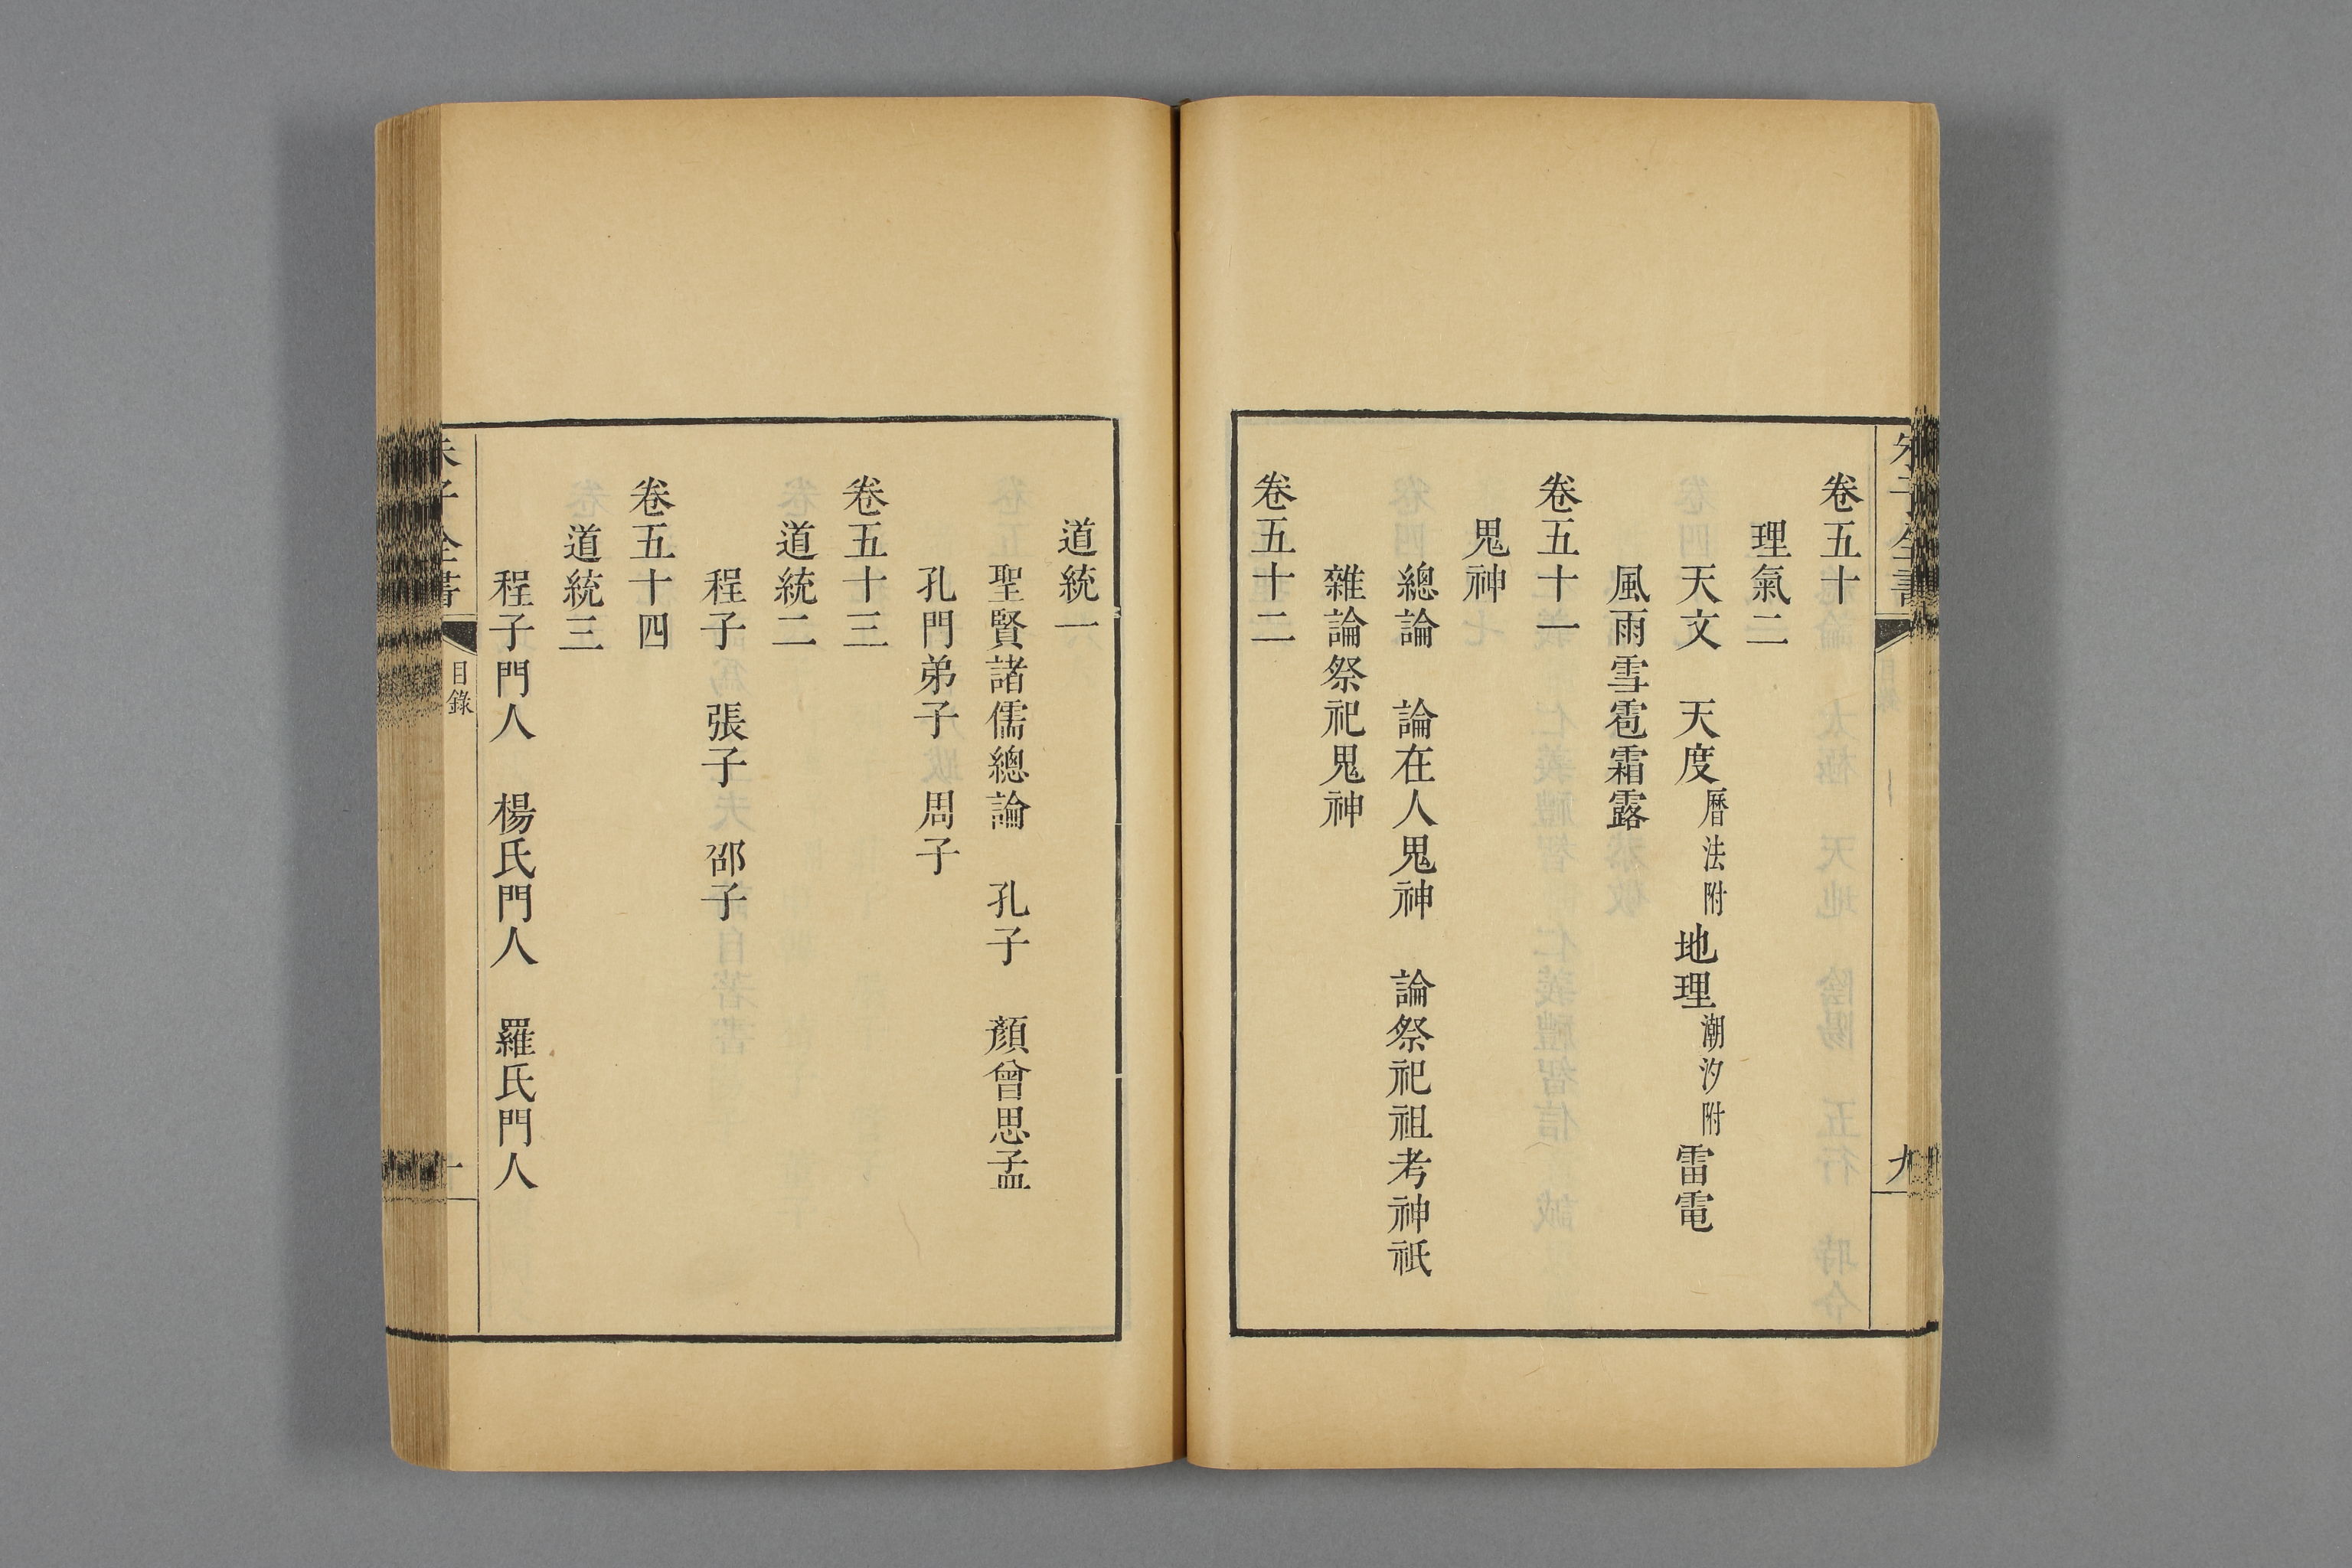 卷五十
理氣二
天文　天度曆法附地理潮汐附雷電
風雨雪雹霜露
卷五十一
鬼神
總論　論在人鬼神　論祭祀祖考神祇
雜論祭祀鬼神
卷五十二
道統一
聖賢諸儒總論　孔子　顏曾思孟
孔門弟子　周子
卷五十三
道統二
程子　張子　邵子
卷五十四
道統三
程子門人　楊氏門人　羅氏門人
朱子全書
目錄